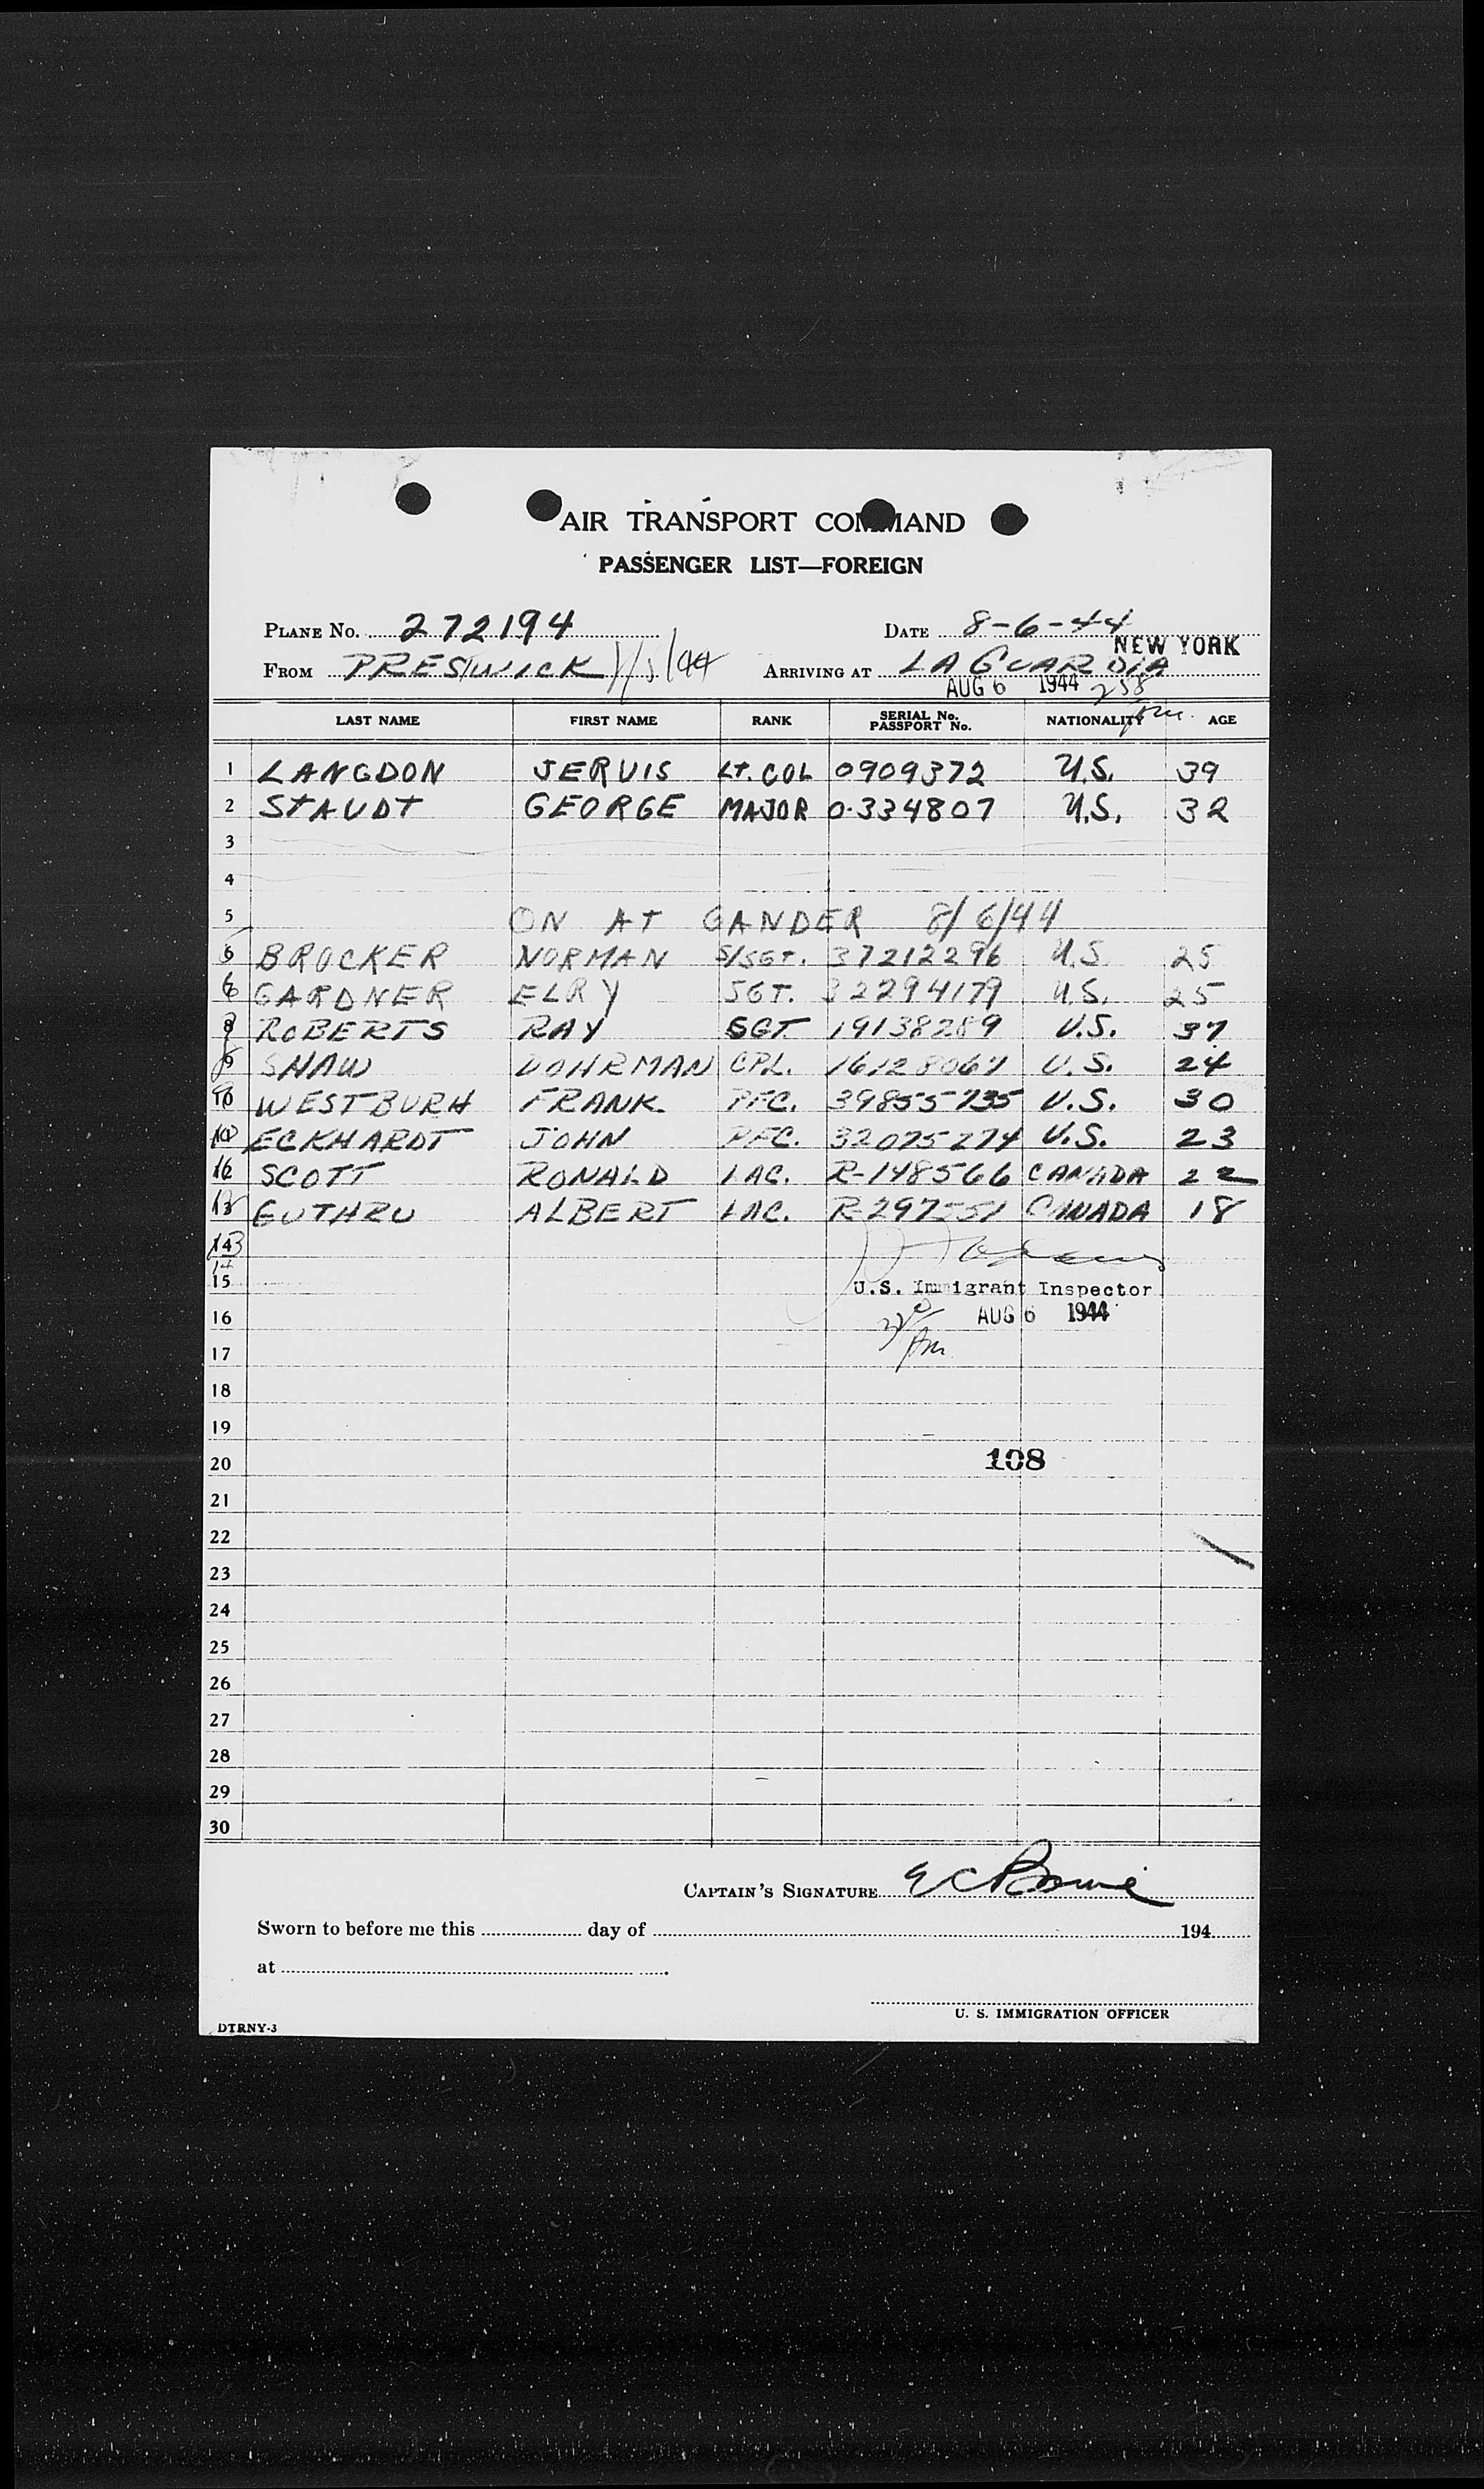 AIR TRANSPORT COMMAND
PASSENGER LIST—FOREIGN
PLANE No. 272194 DATE 8-6-44
NEW YORK
FROM PRESTWICK ARRIVING AT LA GUARDIA
AUG 6 1944 258
LAST NAME FIRST NAME RANK SERIAL No. PASSPORT No. NATIONALITY AGE
1 LANGDON JERVIS LT. COL 0909372 U.S. 39
2 STAUDT GEORGE MAJOR 0-334807 U.S. 32
3
4
5 ON AT GANDER 8/6/44
6 BROCKER NORMAN S/SGT. 37212296 U.S. 25
GARDNER ELRY SGT. 32294179 U.S. 25
8 ROBERTS RAY SGT. 19138289 U.S. 37
9 SHAW DOHRMAN CPL. 16128067 U.S. 24
10 WESTBURH FRANK PFC. 39855735 U.S. 30
ECKHARDT JOHN PFC. 32075274 U.S. 23
SCOTT RONALD LAC. R-148566 CANADA 22
GUTHRU ALBERT LAC. R-297551 CANADA 18
14
15 U.S. Immigrant Inspector
16 AUG 6 1944
17
18
19
20 108
21
22
23
24
25
26
27
28
29
30
CAPTAIN'S SIGNATURE
Sworn to before me this day of 194
at
U. S. IMMIGRATION OFFICER
DTRNY-3